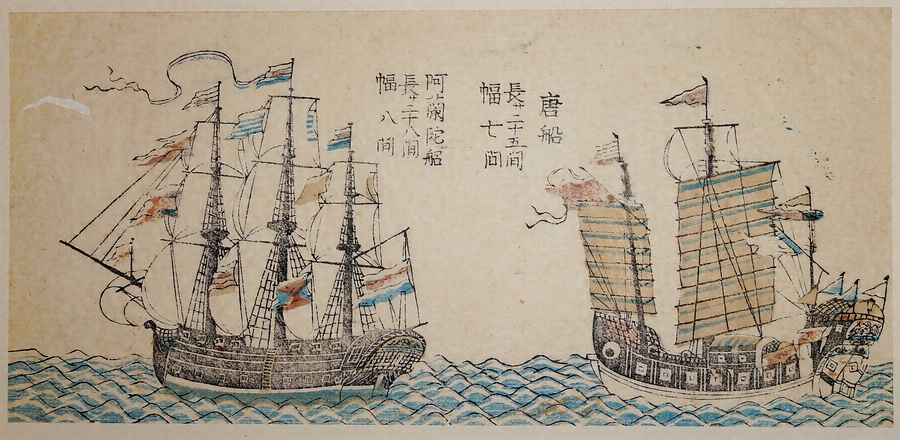 唐船
長サ二十五間
幅七間
阿蘭陀船
長サ二十八間
幅八間